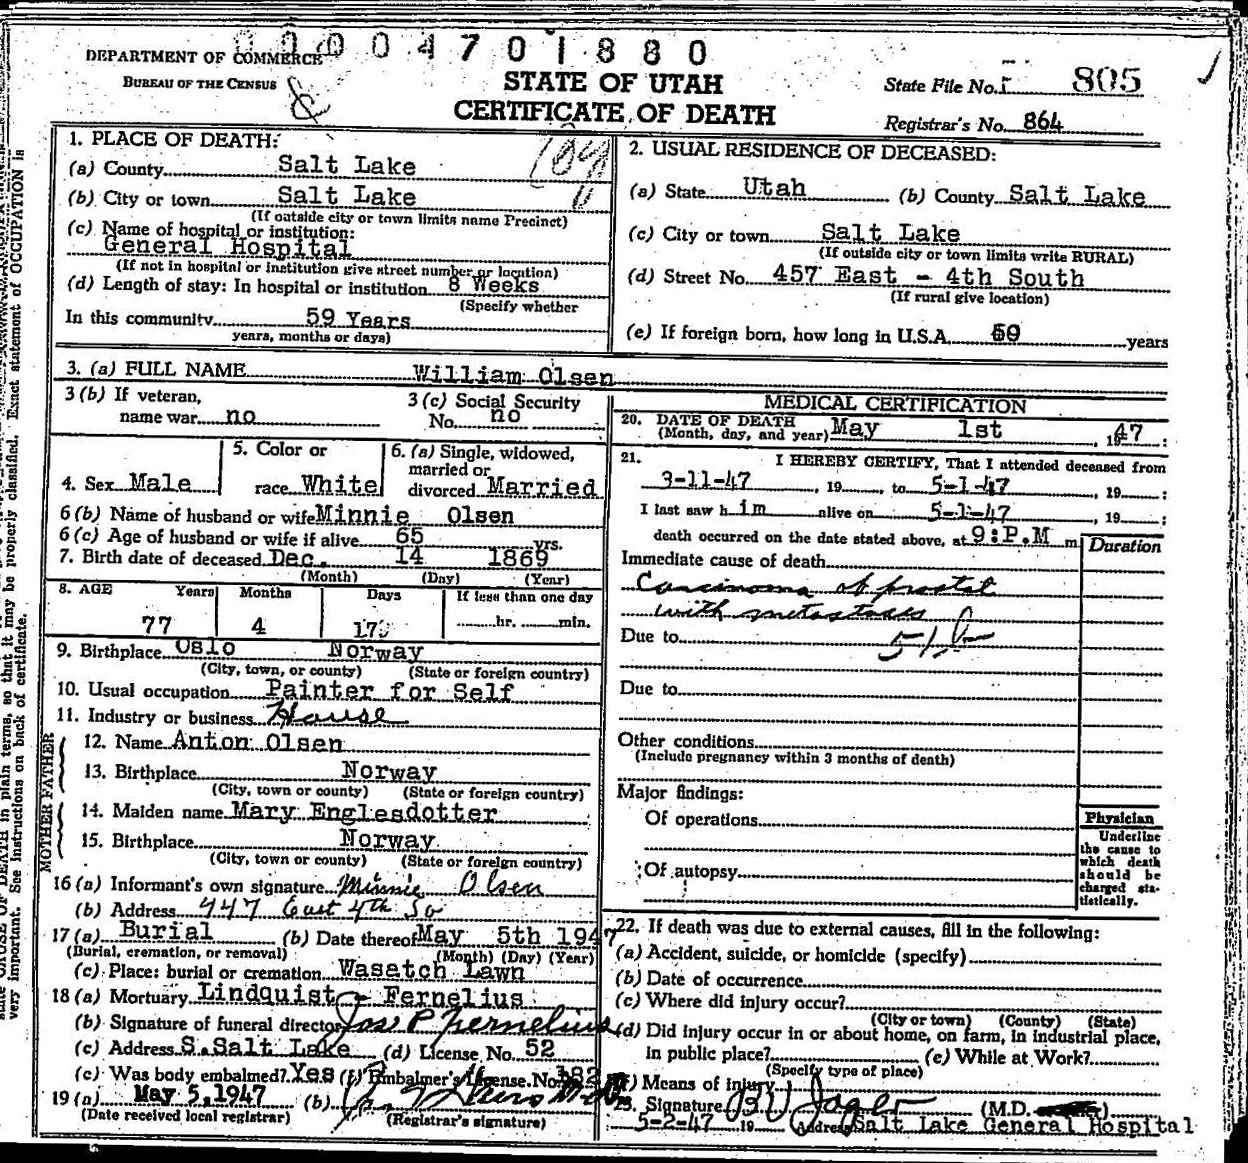 0004701880
DEPARTMENT OF COMMERCE
BUREAU OF THE CENSUS
STATE OF UTAH
CERTIFICATE OF DEATH
State File No. 805
Registrar's No. 864
1. PLACE OF DEATH:
(a) County Salt Lake
(b) City or town Salt Lake
(If outside city or town limits name Precinct)
(c) Name of hospital or institution:
General Hospital
(If not in hospital or institution give street number or location)
(d) Length of stay: In hospital or institution 8 Weeks
(Specify whether
In this community 59 Years
years, months or days)
2. USUAL RESIDENCE OF DECEASED:
(a) State Utah (b) County Salt Lake
(c) City or town Salt Lake
(If outside city or town limits write RURAL)
(d) Street No. 457 East - 4th South
(If rural give location)
(e) If foreign born, how long in U.S.A. 59 years
3. (a) FULL NAME William Olsen
3 (b) If veteran,
name war no
3 (c) Social Security
No. no
4. Sex Male
5. Color or
race White
6. (a) Single, widowed,
married or
divorced Married
6 (b) Name of husband or wife Minnie Olsen
6 (c) Age of husband or wife if alive 65 yrs.
7. Birth date of deceased Dec. 14 1869
(Month) (Day) (Year)
8. AGE Years Months Days If less than one day
77 4 17 hr. min.
9. Birthplace Oslo Norway
(City, town, or county) (State or foreign country)
10. Usual occupation Painter for Self
11. Industry or business House
FATHER
12. Name Anton Olsen
13. Birthplace Norway
(City, town or county) (State or foreign country)
MOTHER
14. Maiden name Mary Englesdotter
15. Birthplace Norway
(City, town or county) (State or foreign country)
16 (a) Informant's own signature Minnie Olsen
(b) Address 447 East 4th So
17 (a) Burial (b) Date thereof May 5th 1947
(Burial, cremation, or removal) (Month) (Day) (Year)
(c) Place: burial or cremation Wasatch Lawn
18 (a) Mortuary Lindquist & Fernelius
(b) Signature of funeral director Jos P Fernelius
(c) Address S. Salt Lake (d) License No. 52
(c) Was body embalmed? Yes (f) Embalmer's License No. 182
19 (a) May 5, 1947 (b)
(Date received local registrar) (Registrar's signature)
MEDICAL CERTIFICATION
20. DATE OF DEATH
(Month, day, and year) May 1st, 1947:
21. I HEREBY CERTIFY, That I attended deceased from
3-11-47, 19 , to 5-1-47, 19 ;
I last saw h im alive on 5-1-47, 19 ;
death occurred on the date stated above, at 9:P.M m
Duration
Immediate cause of death
Carcinoma of prostat
with metastases
Due to
Due to
Other conditions
(Include pregnancy within 3 months of death)
Major findings:
Of operations
Of autopsy
Physician
Underline
the cause to
which death
should be
charged sta-
tistically.
22. If death was due to external causes, fill in the following:
(a) Accident, suicide, or homicide (specify)
(b) Date of occurrence
(c) Where did injury occur?
(City or town) (County) (State)
(d) Did injury occur in or about home, on farm, in industrial place,
in public place? (e) While at Work?
(Specify type of place)
(f) Means of injury
23. Signature (M.D.
5-2-47 19 Address Salt Lake General Hospital
CAUSE OF DEATH in plain terms, so that it may be properly classified. Exact statement of OCCUPATION is
very important. See instructions on back of certificate.